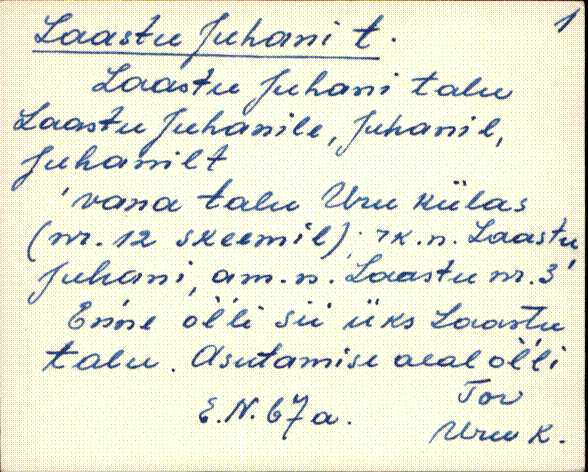 1
Laastu Juhani t.
Laastu Juhani talu
Laastu Juhanile, Juhanil,
Juhanilt
'vana talu Uru külas
(nr. 12 skeemil), rk.n. Laastu
Juhani, am.n. Laastu nr. 3'
Enne ol'li sii üks Laastu
talu. Asutamise aeal ol'li
E.N. 67 a. Tor
Uru k.